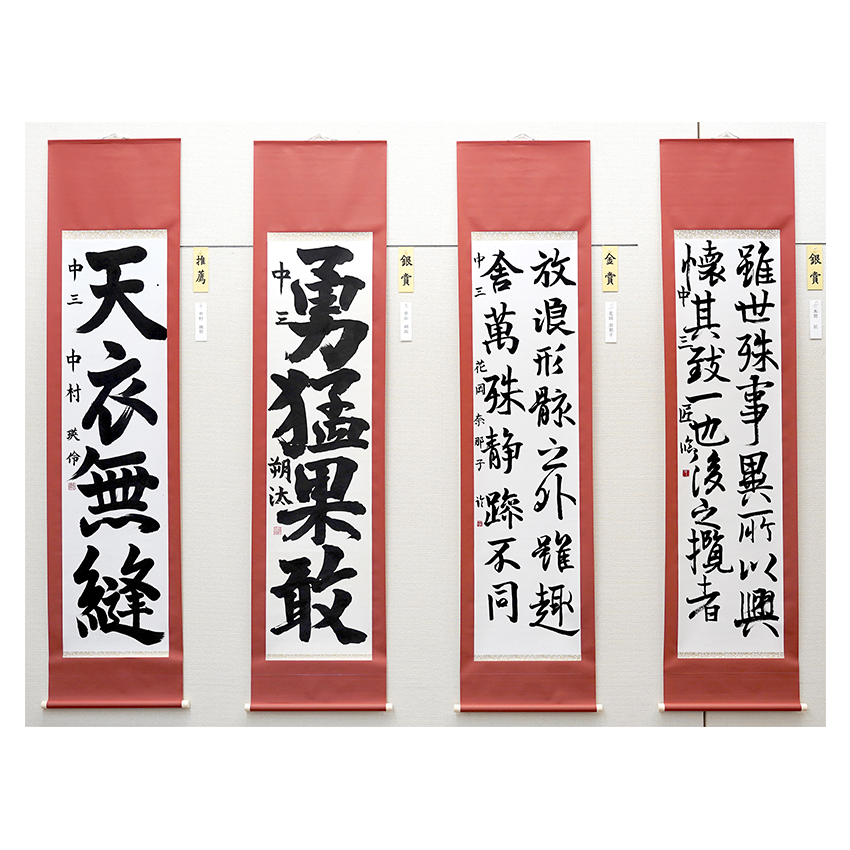 天衣無縫
中三 中村 瑛伶
推薦
勇猛果敢
中三 朔汰
銀賞
放浪形骸之外雖趣
舎萬殊静躁不同
中三 花岡 奈那子 臨
金賞
雖世殊事異所以興
懐其致一也後之攬者
中三 匠 臨
銀賞